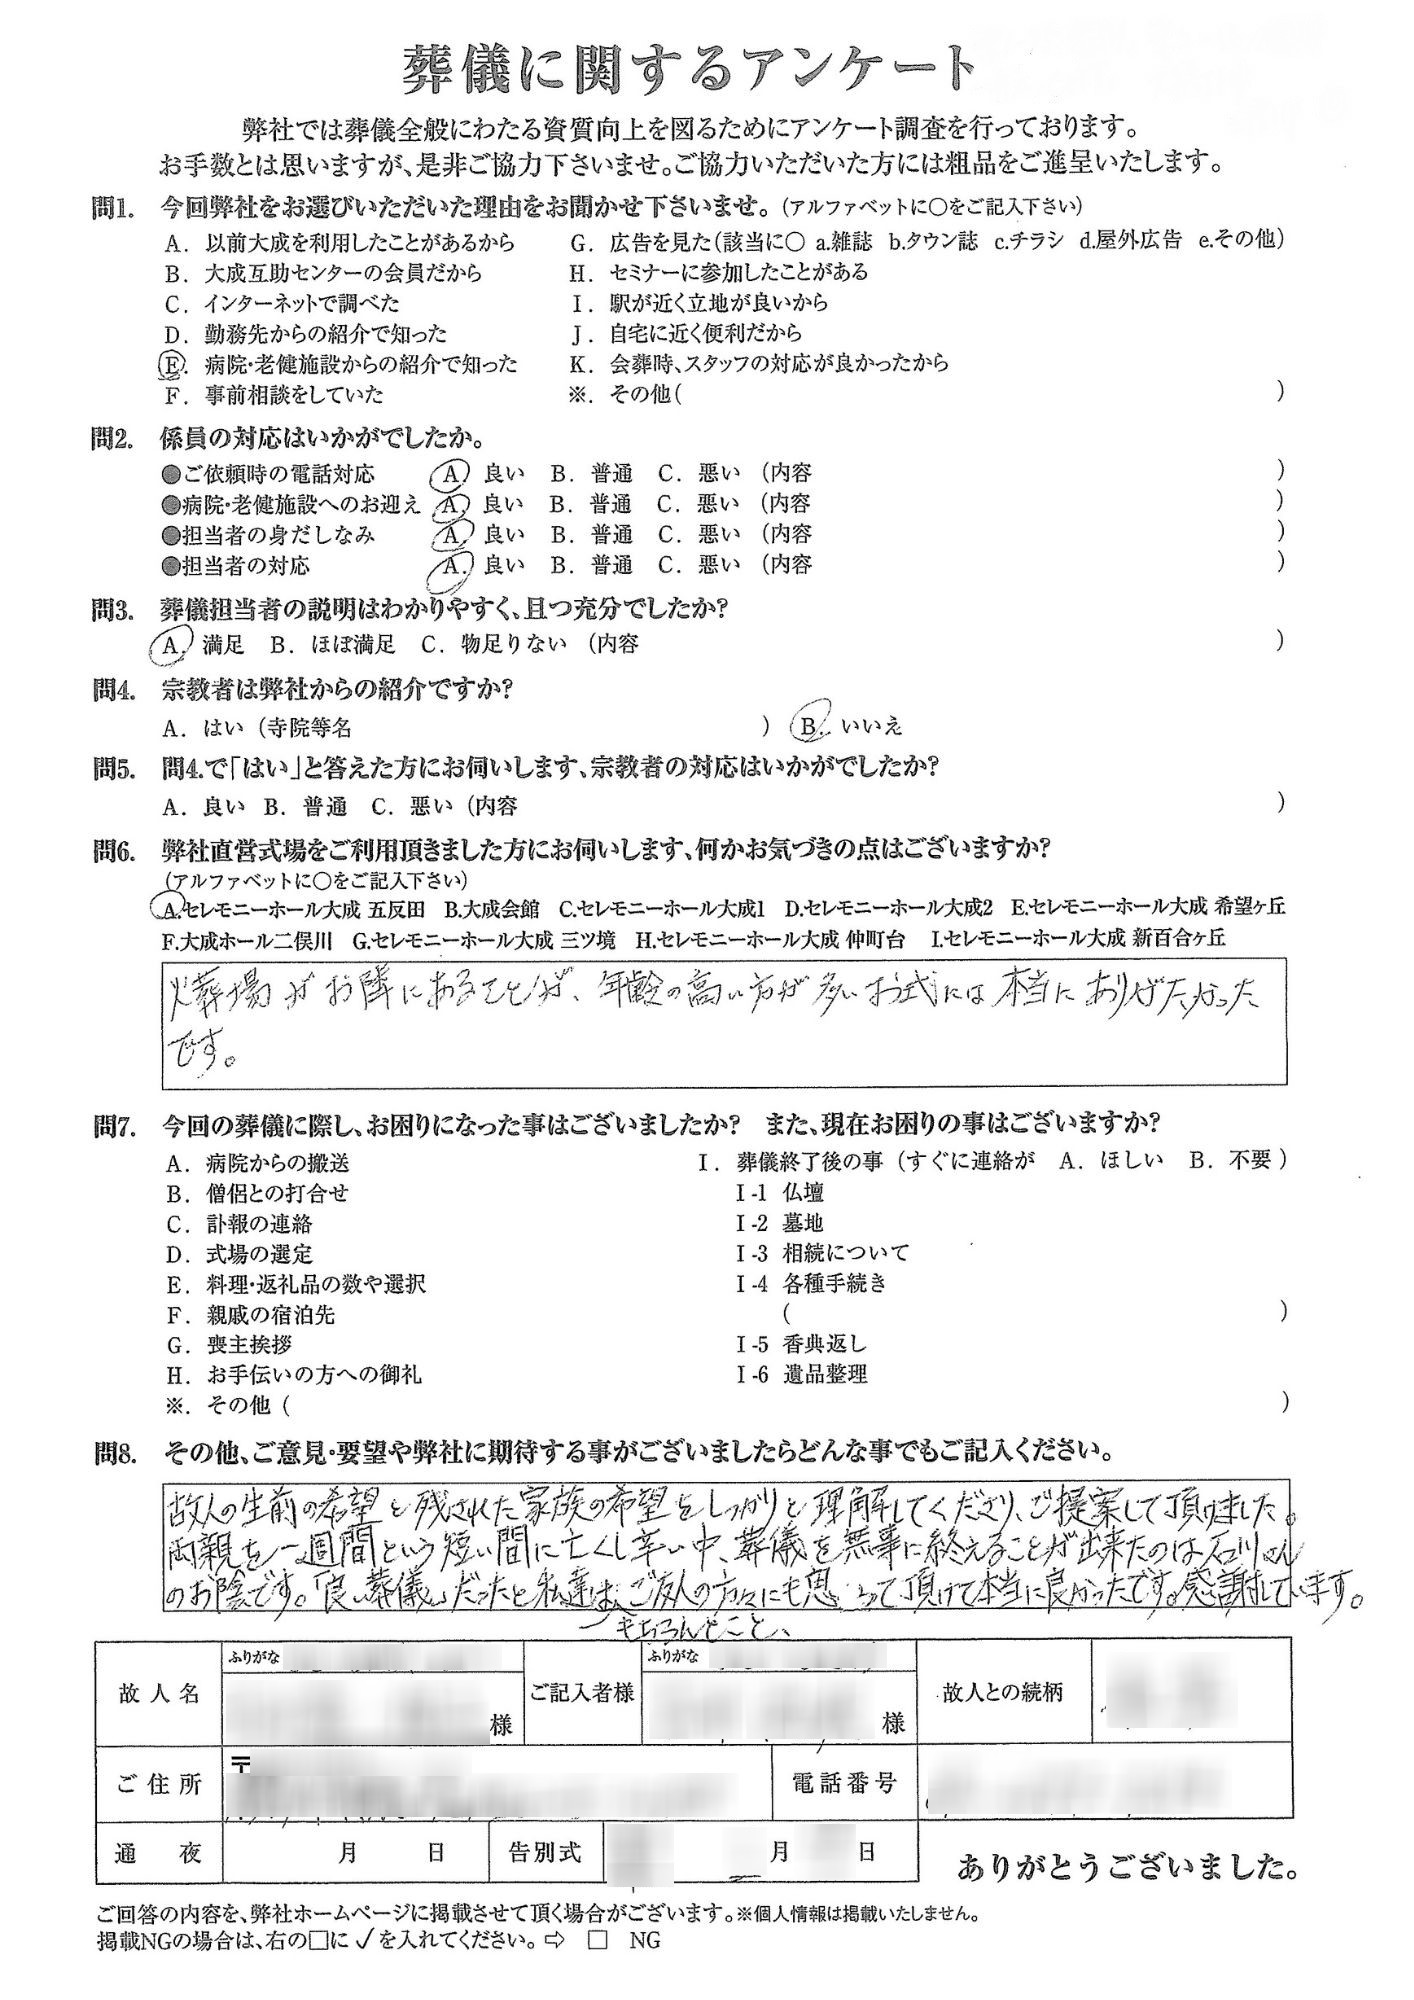 葬儀に関するアンケート
弊社では葬儀全般にわたる資質向上を図るためにアンケート調査を行っております。
お手数とは思いますが、是非ご協力下さいませ。ご協力いただいた方には粗品をご進呈いたします。
問1. 今回弊社をお選びいただいた理由をお聞かせ下さいませ。(アルファベットに〇をご記入下さい)
A. 以前大成を利用したことがあるから G. 広告を見た(該当に〇 a.雑誌 b.タウン誌 c.チラシ d.屋外広告 e.その他)
B. 大成互助センターの会員だから H. セミナーに参加したことがある
C. インターネットで調べた I. 駅が近く立地が良いから
D. 勤務先からの紹介で知った J. 自宅に近く便利だから
E. 病院・老健施設からの紹介で知った K. 会葬時、スタッフの対応が良かったから
F. 事前相談をしていた ※. その他( )
問2. 係員の対応はいかがでしたか。
●ご依頼時の電話対応 A. 良い B. 普通 C. 悪い (内容 )
●病院・老健施設へのお迎え A. 良い B. 普通 C. 悪い (内容 )
●担当者の身だしなみ A. 良い B. 普通 C. 悪い (内容 )
●担当者の対応 A. 良い B. 普通 C. 悪い (内容 )
問3. 葬儀担当者の説明はわかりやすく、且つ充分でしたか?
A. 満足 B. ほぼ満足 C. 物足りない (内容 )
問4. 宗教者は弊社からの紹介ですか?
A. はい (寺院等名 ) B. いいえ
問5. 問4.で「はい」と答えた方にお伺いします、宗教者の対応はいかがでしたか?
A. 良い B. 普通 C. 悪い (内容 )
問6. 弊社直営式場をご利用頂きました方にお伺いします、何かお気づきの点はございますか?
(アルファベットに〇をご記入下さい)
A.セレモニーホール大成 五反田 B.大成会館 C.セレモニーホール大成1 D.セレモニーホール大成2 E.セレモニーホール大成 希望ヶ丘
F.大成ホール二俣川 G.セレモニーホール大成 三ツ境 H.セレモニーホール大成 仲町台 I.セレモニーホール大成 新百合ヶ丘
火葬場がお隣にあることが、年齢の高い方が多いお式には本当にありがたかった
です。
問7. 今回の葬儀に際し、お困りになった事はございましたか? また、現在お困りの事はございますか?
A. 病院からの搬送 I. 葬儀終了後の事 (すぐに連絡が A. ほしい B. 不要 )
B. 僧侶との打合せ I-1 仏壇
C. 訃報の連絡 I-2 墓地
D. 式場の選定 I-3 相続について
E. 料理・返礼品の数や選択 I-4 各種手続き
F. 親戚の宿泊先 ( )
G. 喪主挨拶 I-5 香典返し
H. お手伝いの方への御礼 I-6 遺品整理
※. その他 ( )
問8. その他、ご意見・要望や弊社に期待する事がございましたらどんな事でもご記入ください。
故人の生前の希望と残された家族の希望をしっかりと理解してくださり、ご提案して頂けました。
両親を一週間という短い間に亡くし辛い中、葬儀を無事に終えることが出来たのは石川さん
のお陰です。「良い葬儀」だったと私達は、ご友人の方々にも思って頂けて本当に良かったです。感謝しています。
もちろんのこと、
ふりがな ふりがな
故人名 様 ご記入者様 様 故人との続柄
ご住所 〒 電話番号
通夜 月 日 告別式 月 日
ありがとうございました。
ご回答の内容を、弊社ホームページに掲載させて頂く場合がございます。※個人情報は掲載いたしません。
掲載NGの場合は、右の□に✓を入れてください。⇨ □ NG